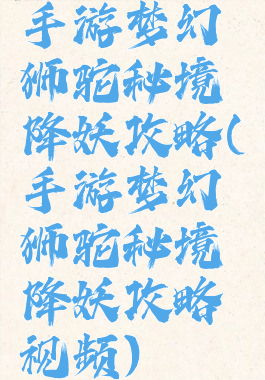 手游梦幻
狮驼秘境
降妖攻略(
手游梦幻
狮驼秘境
降妖攻略
视频)